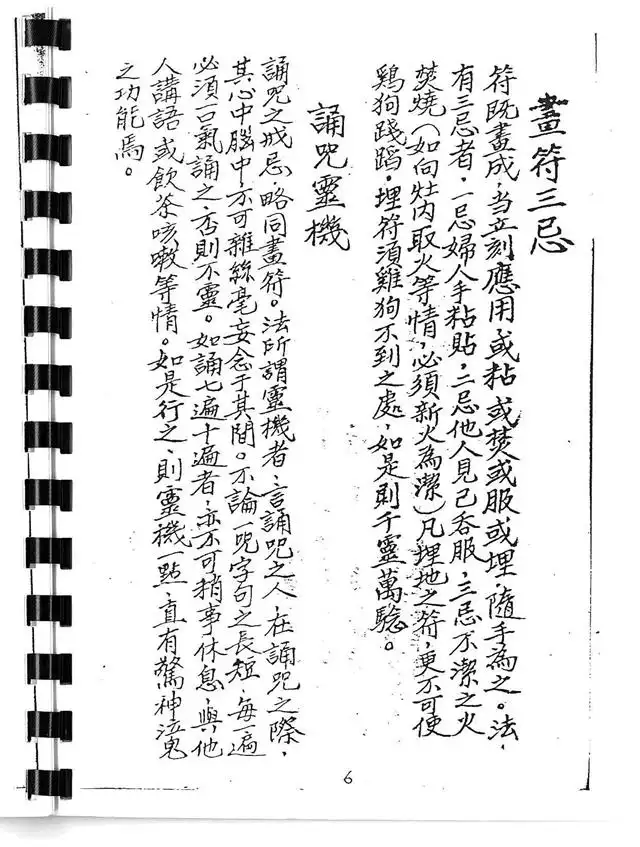 畫符三忌
符既畫成，当立刻應用，或粘或焚或服或埋，隨手為之。法，
有三忌者，一忌婦人手粘貼，二忌他人見己吞服，三忌不潔之火
焚燒（如向灶内取火等情，必須新火為潔）凡埋地之符，更不可使
鷄狗踐蹈。埋符須雞狗不到之處，如是則千靈萬驗。
誦咒靈機
誦咒之戒忌，略同畫符。法所謂靈機者，言誦咒之人，在誦咒之際，
其心中腦中，不可雜絲毫妄念于其間。不論一咒字句之長短，每一遍
必須一口氣誦之，否則不靈。如誦七遍十遍者，亦不可稍事休息，與他
人講語或飲茶咳嗽等情。如是行之，則靈機一點，直有驚神泣鬼
之功能焉。
6